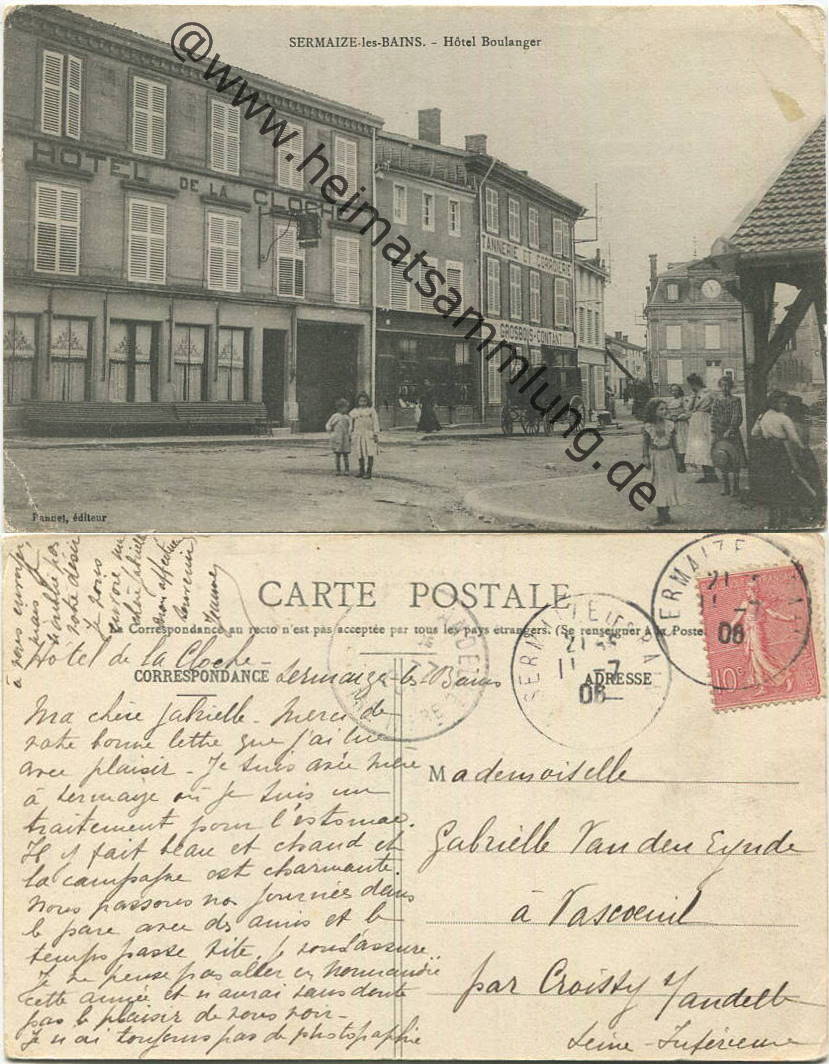 SERMAIZE-les-BAINS. - Hôtel Boulanger
HOTEL DE LA CLOCHE
TANNERIE ET CORROIERIE
GROSBOIS-CONTANT
Pannet, éditeur
@www.heimatsammlung.de
CARTE POSTALE
La Correspondance au recto n'est pas acceptée par tous les pays étrangers. (Se renseigner à la Poste
CORRESPONDANCE
ADRESSE
SERMAIZE
21
11 -7
06
10c
à vous envoyer
mais
n'oublie pas
votre désir
Je vous
envoie un
affectueux
souvenir
Hôtel de la Cloche -
Sermaize-les-Bains
Ma chère Gabrielle - Merci de
votre bonne lettre que j'ai lue
avec plaisir - Je suis avec Mère
à Sermaize où je suis un
traitement pour l'estomac.
Il y fait beau et chaud et
la campagne est charmante.
Nous passons nos journées dans
le parc avec des amis et le
temps passe vite, je vous l'assure
Je ne pense pas aller en Normandie
cette année et n'aurai sans doute
pas le plaisir de vous voir -
Je n'ai toujours pas de photographie
Mademoiselle
Gabrielle Van den Eynde
à Vascoeuil
par Croissy
Seine-Inférieure